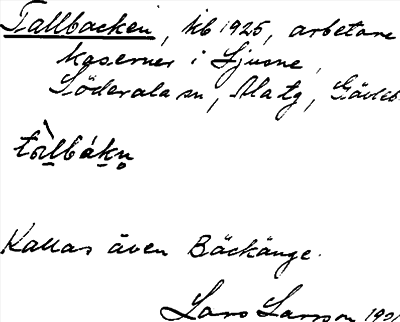 Tallbacken, kb 1925, arbetare
kaserner i Ljusne,
Söderala sn, Ala tg, Gävleb
tàlbákn̥
Kallas även Bäckänge.
Lars Larsson 19